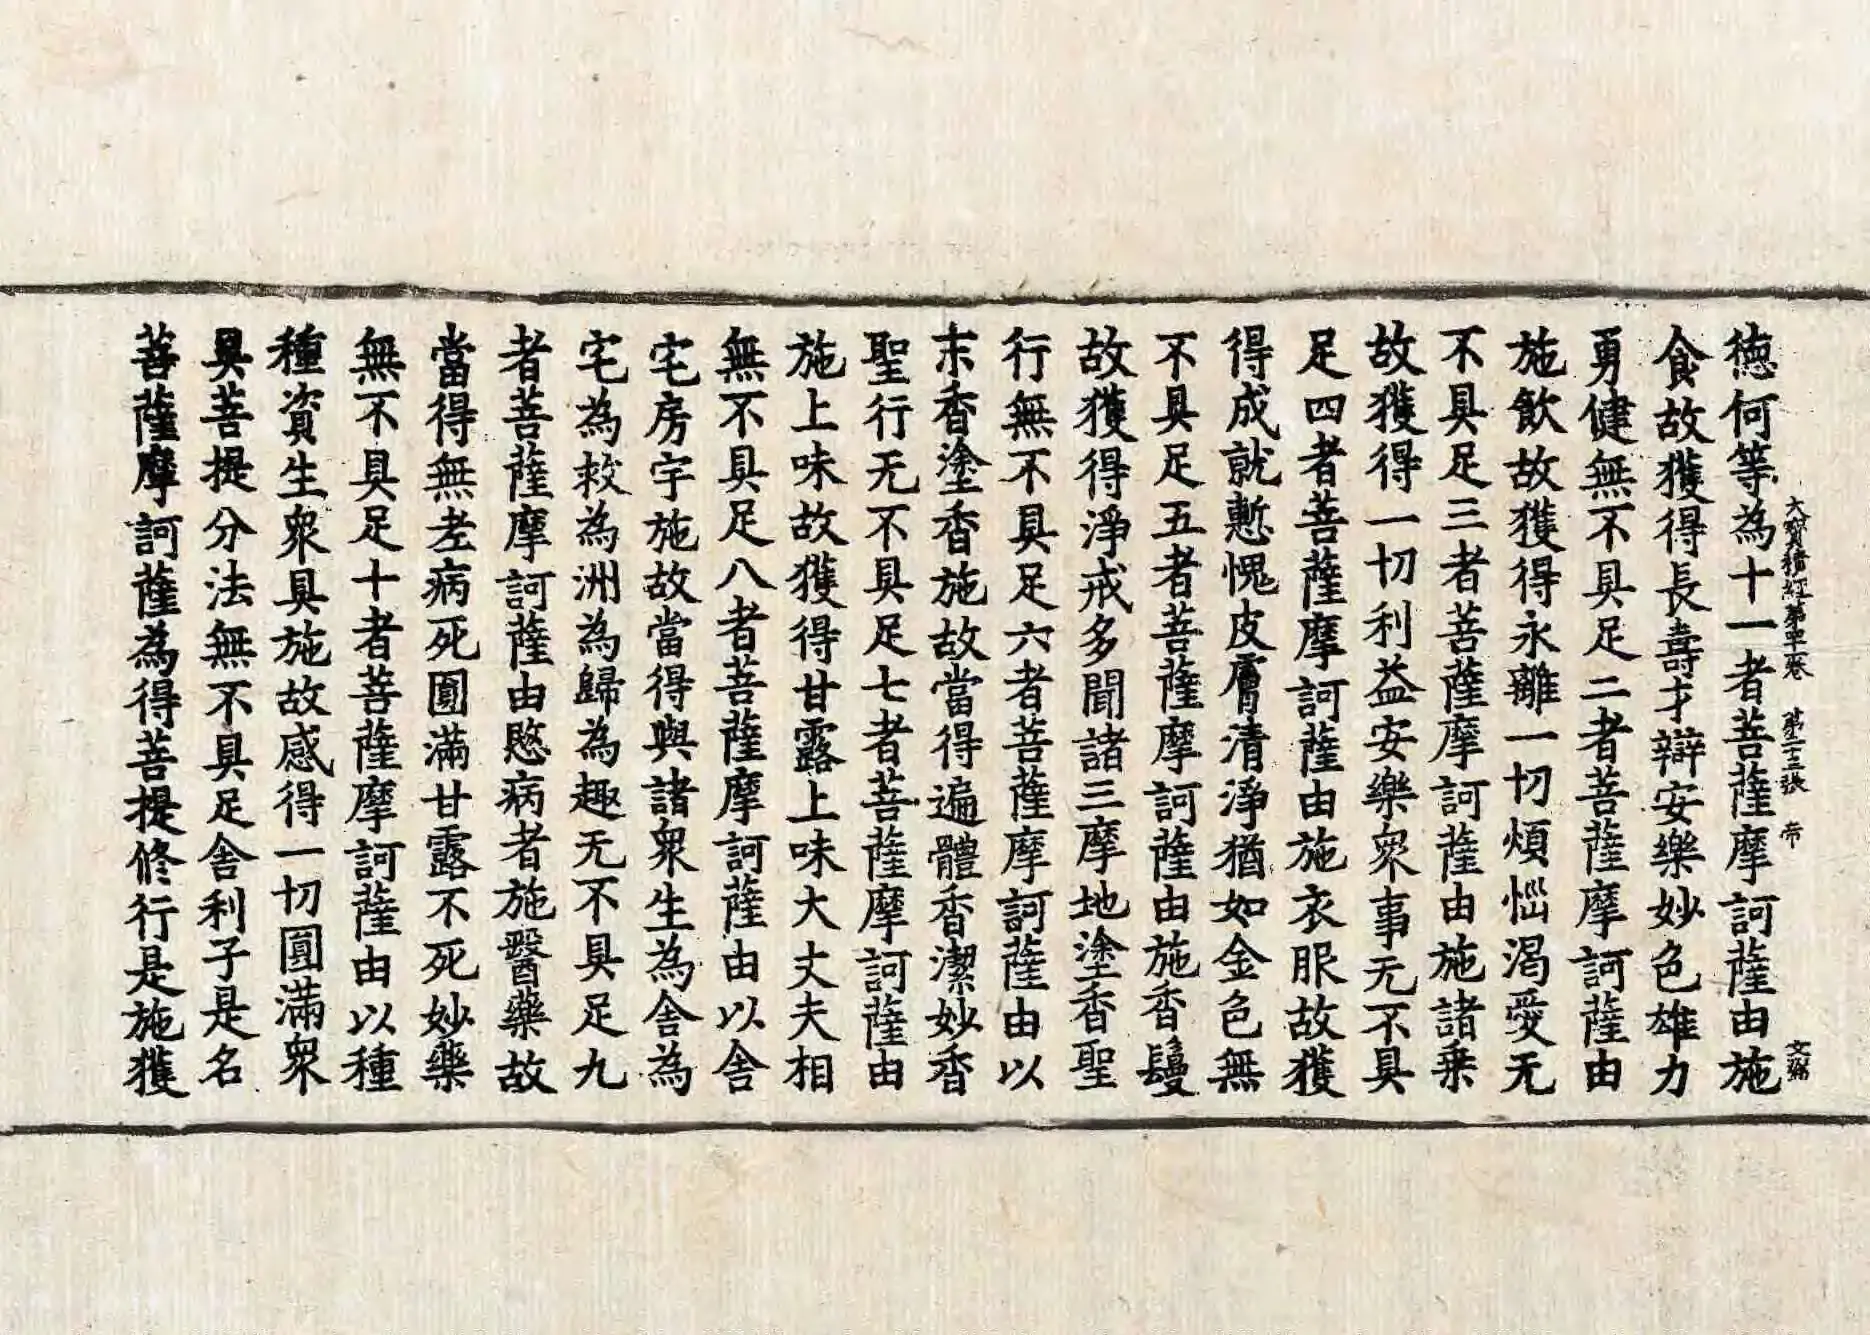 大寶積經第四十一卷 第二十三張 帝
德何等為十一者菩薩摩訶薩由施
食故獲得長壽才辯安樂妙色雄力
勇健無不具足二者菩薩摩訶薩由
施飲故獲得永離一切煩惱渴愛无
不具足三者菩薩摩訶薩由施諸乗
故獲得一切利益安樂衆事无不具
足四者菩薩摩訶薩由施衣服故獲
得成就慙愧皮膚清淨猶如金色無
不具足五者菩薩摩訶薩由施香鬘
故獲得淨戒多聞諸三摩地塗香聖
行無不具足六者菩薩摩訶薩由以
末香塗香施故當得遍體香潔妙香
聖行无不具足七者菩薩摩訶薩由
施上味故獲得甘露上味大丈夫相
無不具足八者菩薩摩訶薩由以舍
宅房宇施故當得與諸衆生為舍為
宅為救為洲為歸為趣无不具足九
者菩薩摩訶薩由愍病者施醫藥故
當得無老病死圓滿甘露不死妙藥
無不具足十者菩薩摩訶薩由以種
種資生衆具施故感得一切圓滿衆
具菩提分法無不具足舍利子是名
菩薩摩訶薩為得菩提修行是施獲